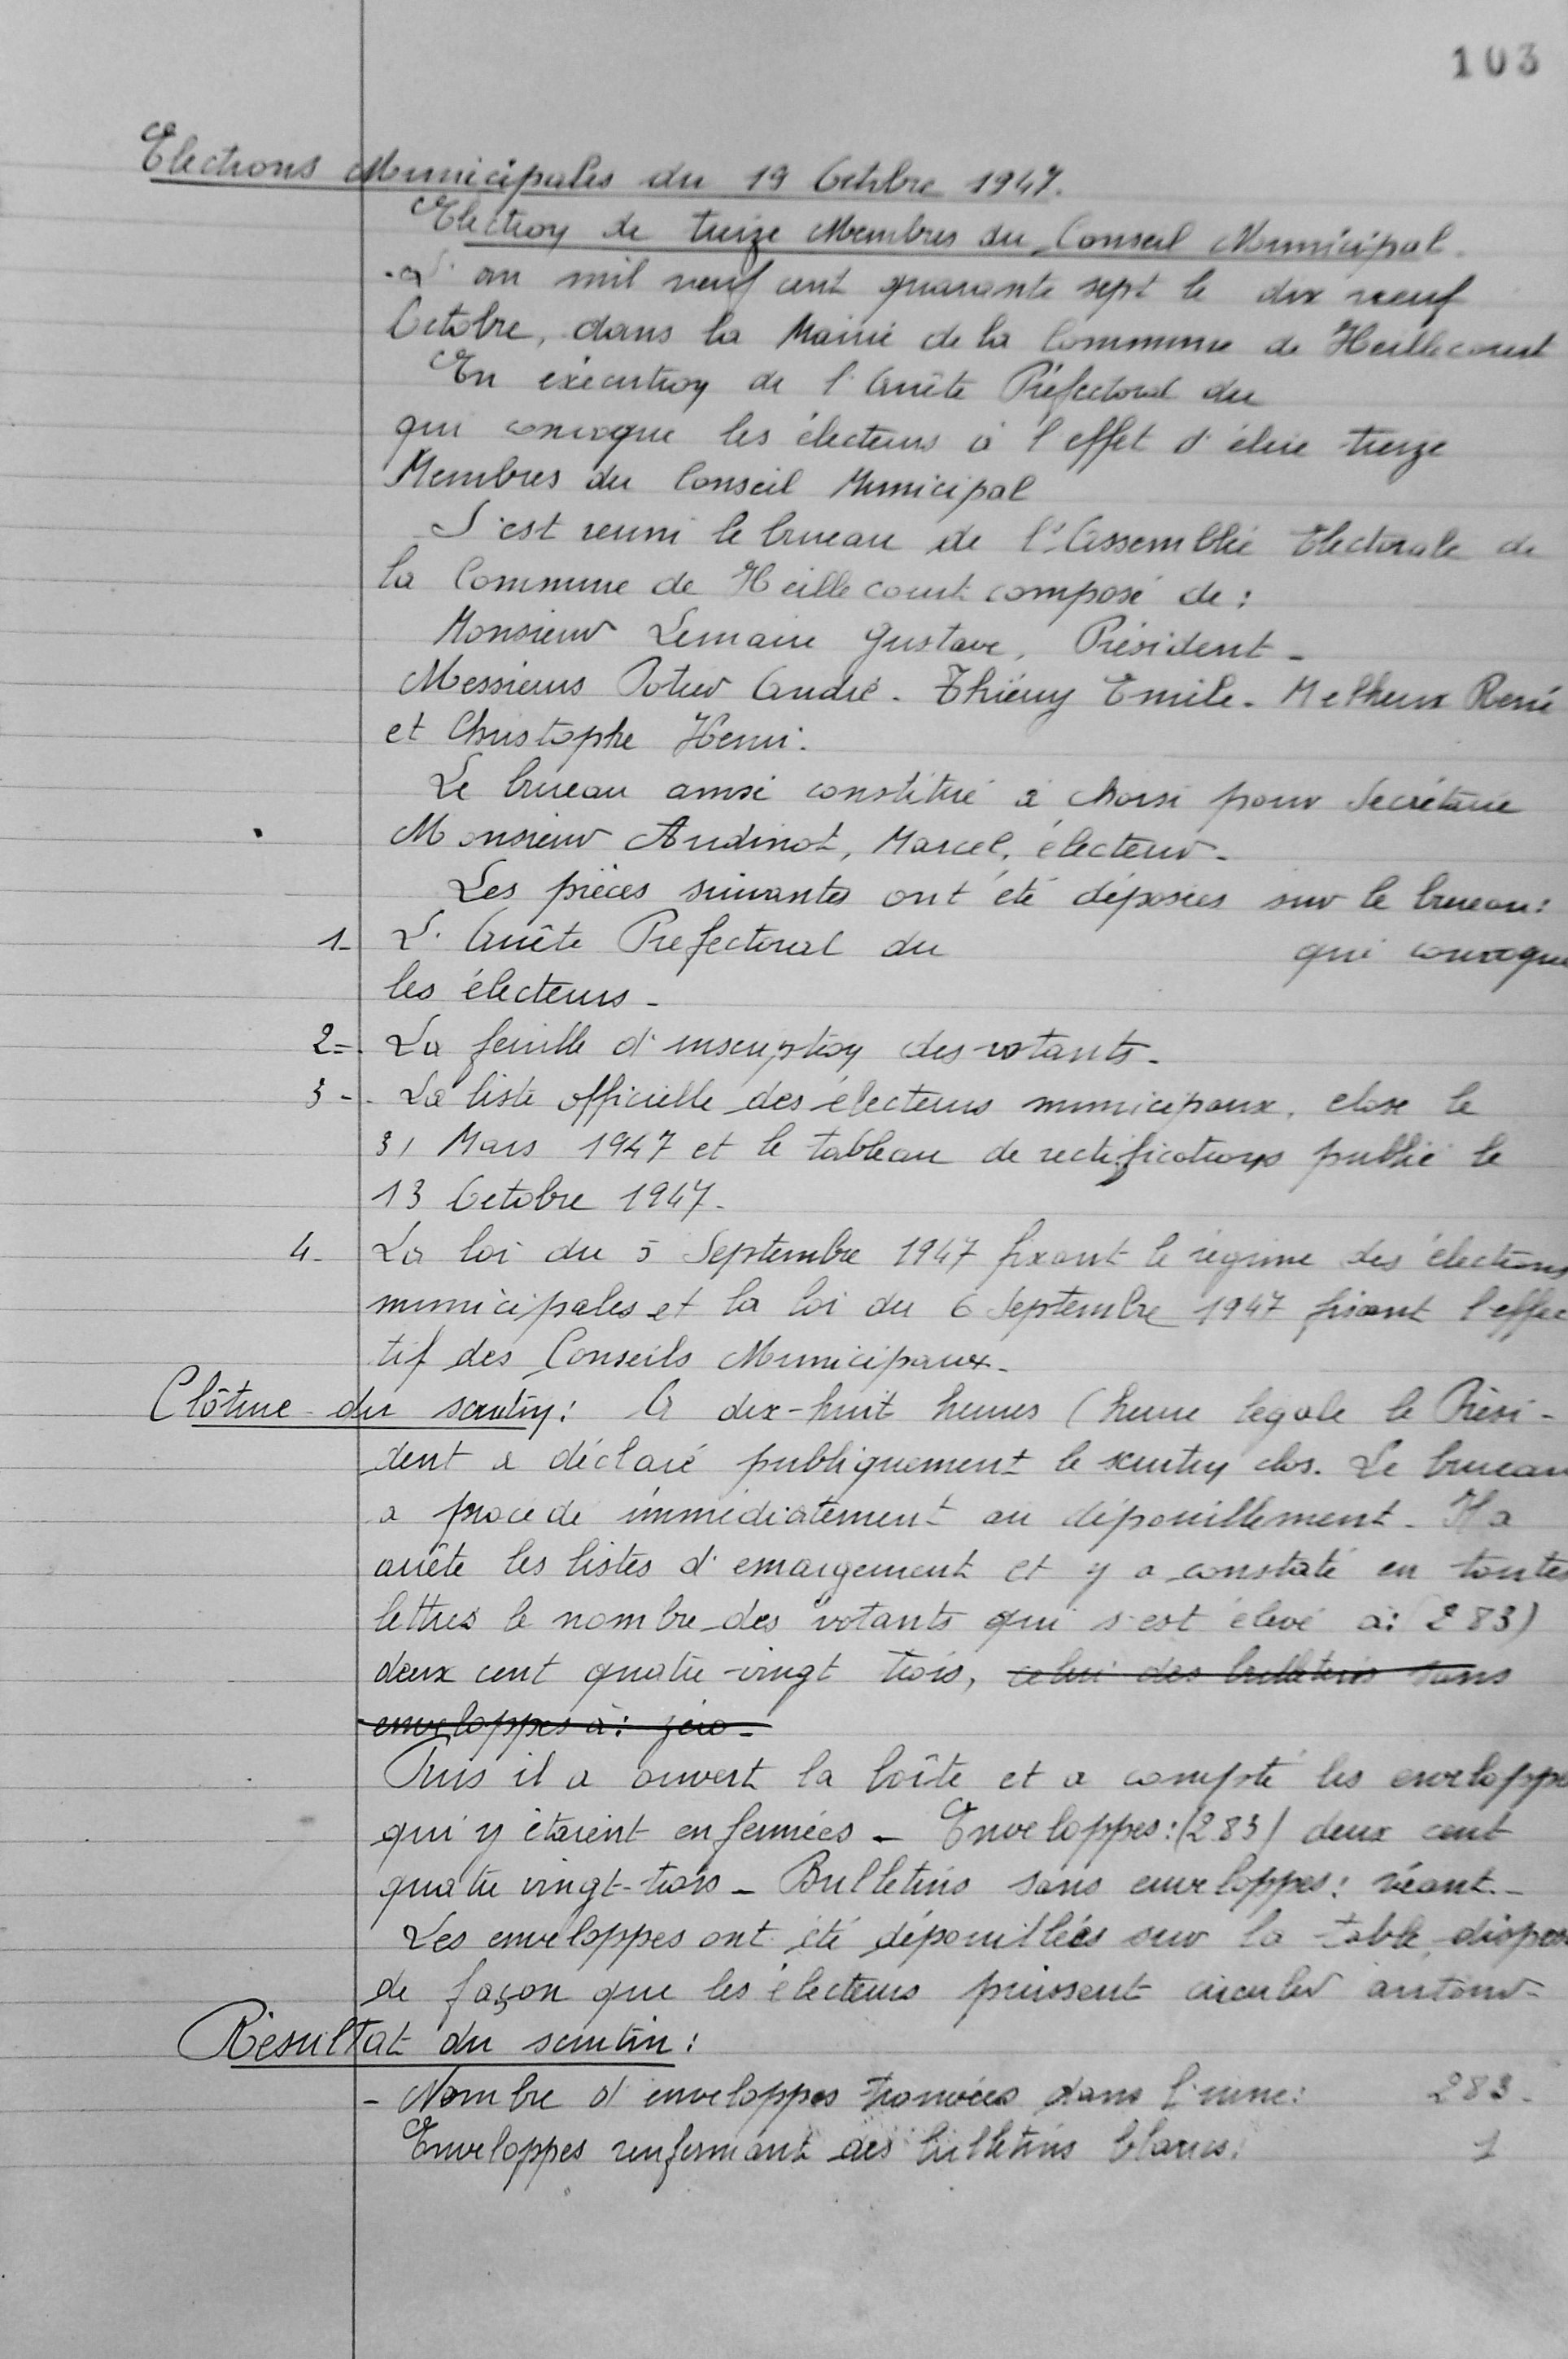 103
Elections Municipales du 19 Octobre 1947.
Election de treize Membres du Conseil Municipal.
L'an mil neuf cent quarante sept le dix neuf
Octobre, dans la Mairie de la Commune de Heillecourt
En éxécution de l'Arrêté Préfectoral du
qui convoque les électeurs à l'effet d'élire treize
Membres du Conseil Municipal
S'est reuni le bureau de l'Assemblée Electorale de
la Commune de Heillecourt composé de :
Monsieur Lemaire Gustave, Président -
Messieurs Potier André - Thiéry Emile - Metheux René
et Christophe Henri.
Le bureau ainsi constitué a choisi pour Secrétaire
Monsieur Audinot, Marcel, électeur -
Les pièces suivantes ont été déposées sur le bureau :
1- L'Arrêté Prefectoral du qui convoque
les électeurs -
2=. La feuille d'inscription des votants -
3-. La liste officielle des électeurs municipaux, close le
31 Mars 1947 et le tableau de rectifications publié le
13 Octobre 1947 -
4- La loi du 5 Septembre 1947 fixant le régime des élections
municipales et la loi du 6 Septembre 1947 fixant l'effec
tif des Conseils Municipaux -
Clôture du scrutin : A dix-huit heures (heure légale le Prési-
dent a déclaré publiquement le scrutin clos. Le bureau
a procédé immédiatement au dépouillement - Il a
arrêté les listes d'emargement et y a constaté en toutes
lettres le nombre des votants qui s'est élevé à : (283)
deux cent quatre-vingt trois, celui des bulletins sans
enveloppes à : zéro -
Puis il a ouvert la boîte et a compté les enveloppe
qui y étaient enfermées - Enveloppes : (283) deux cent
quatre vingt-trois - Bulletins sans enveloppes : néant -
Les enveloppes ont été dépouillées sur la table dispos
de façon que les électeurs puissent circuler autour -
Résultat du scrutin :
- Nombre d'enveloppes trouvées dans l'urne : 283 -
Enveloppes renfermant des bulletins blancs : 1